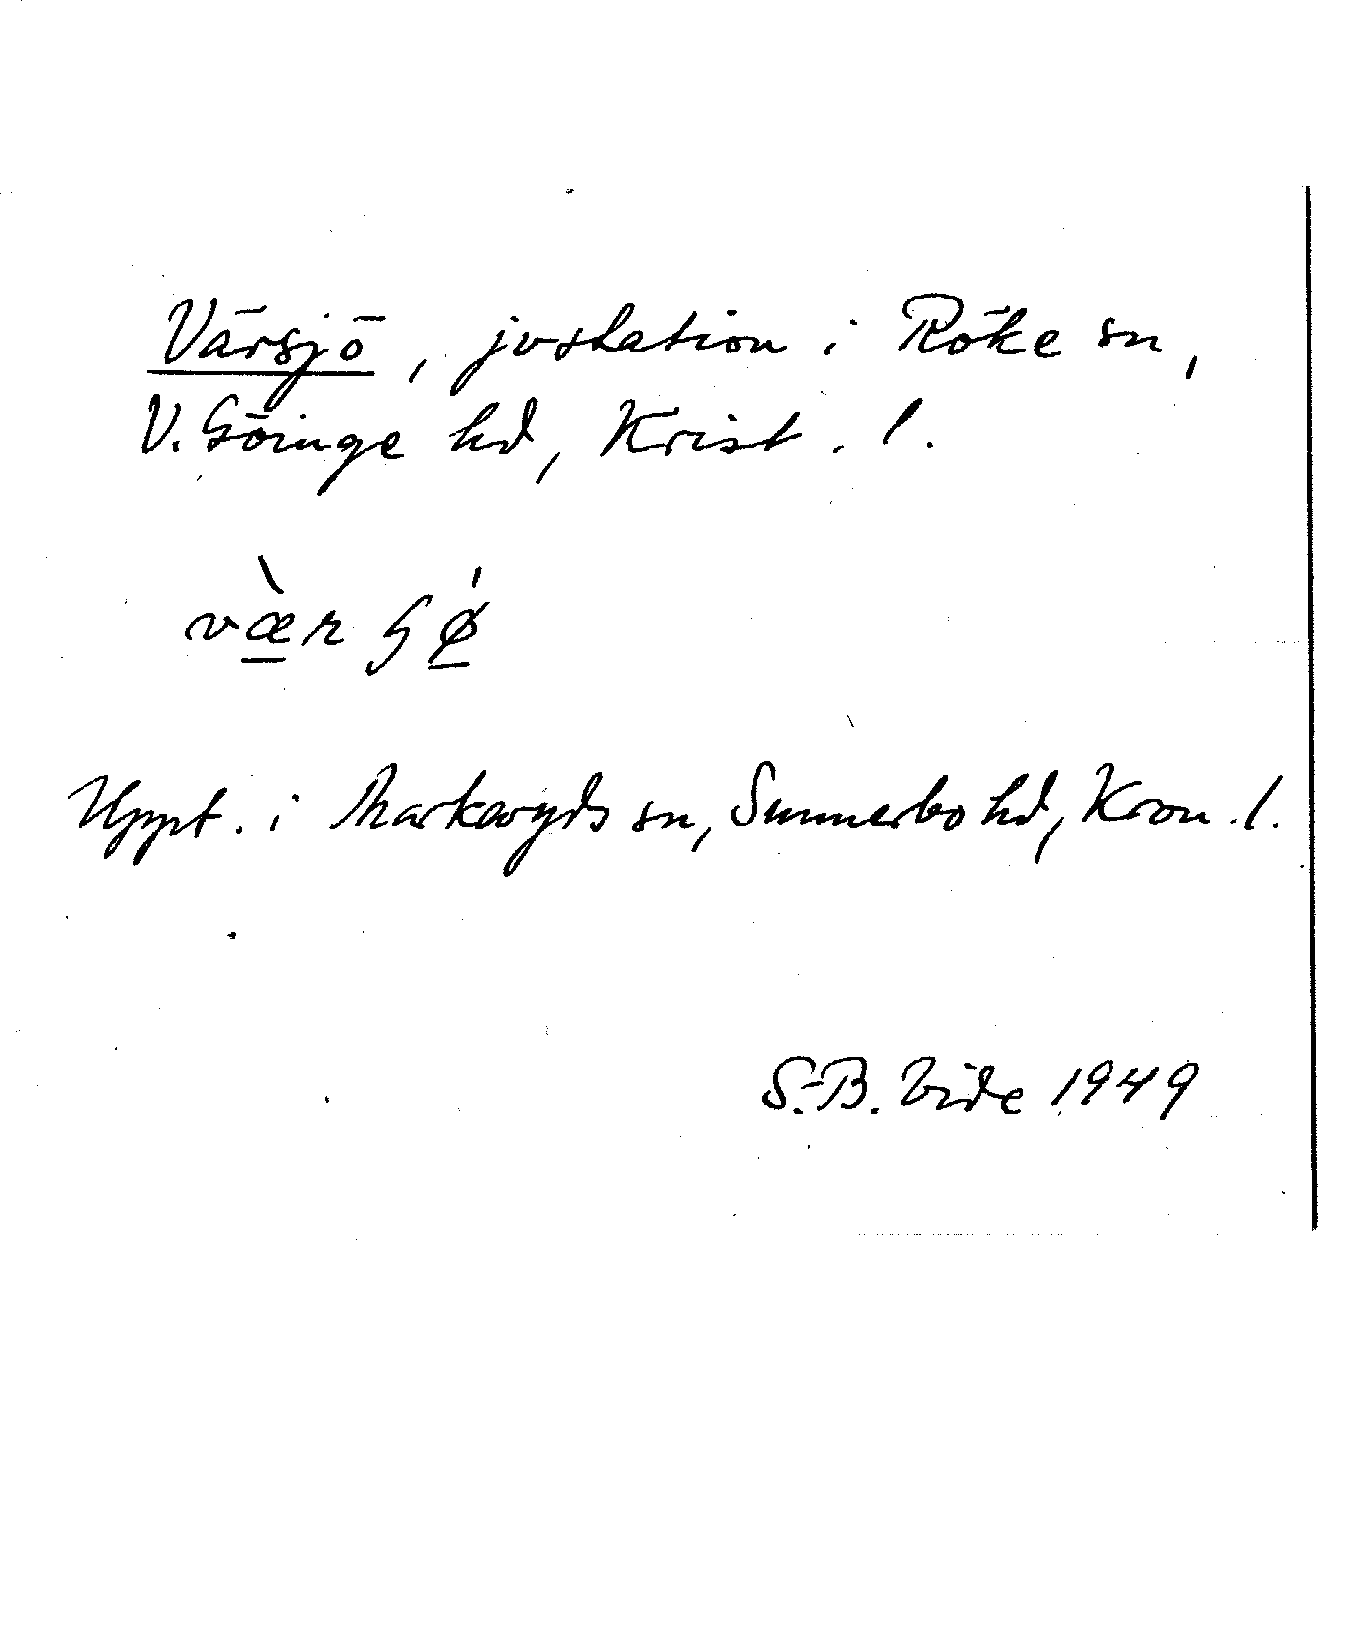 Värsjö, jvstation i Röke sn,
V. Göinge hd, Krist. l.
væ̀r ɧǿ
Uppt. i Markaryds sn, Sunnerbo hd, Kron. l.
S.-B. Vide 1949